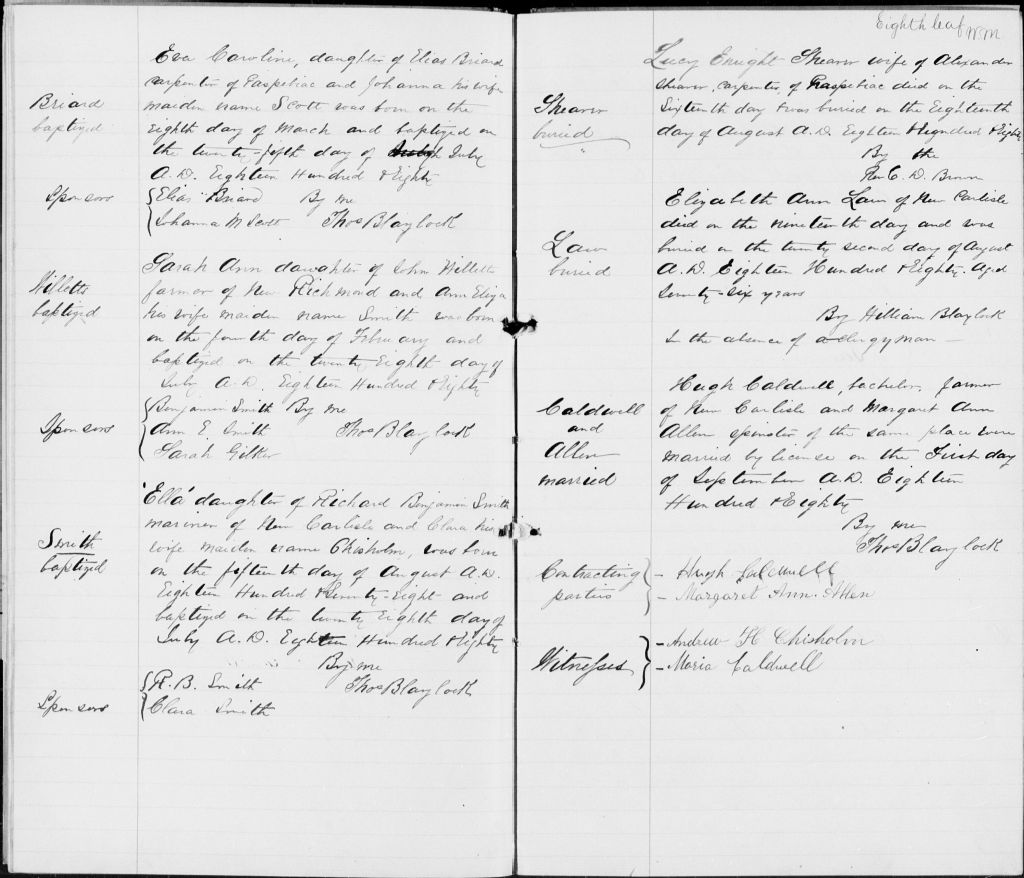 Eva Caroline, daughter of Elias Briard
carpenter of Paspebiac and Johanna his wife
Briard maiden name Scott was born on the
baptized eighth day of March and baptized on
the twenty-fifth day of July
A.D. Eighteen Hundred & Eighty
Sponsors Elias Briard By me
Johanna M Scott Thos Blaylock
Sarah Ann dawghter of John Willett
Willetts farmer of New Richmond and Ann Eliza
baptized his wife maiden name Smith was born
on the fourth day of February and
baptized on the twenty Eighth day of
July A.D. Eighteen Hundred & Eighty
Benjamin Smith By me
Sponsors Ann E. Smith Thos Blaylock
Sarah Gilker
'Ella' daughter of Richard Benjamin Smith
mariner of New Carlisle and Clara his
Smith wife maiden name Chisholm, was born
baptized on the fifteenth day of August A.D.
Eighteen Hundred & Seventy-Eight and
baptized on the twenty Eighth day of
July A.D. Eighteen Hundred & Eighty
By me
R. B. Smith Thos Blaylock
Sponsors Clara Smith
Eighth leaf W.M
Lucy Enright Shearer wife of Alexander
Shearer, carpenter, of Paspebiac died on the
Shearer Sixteenth day & was buried on the Eighteenth
buried day of August A.D. Eighteen Hundred & Eighty
By the
Rev C. D. Brown
Elizabeth Ann Law of New Carlisle
died on the nineteenth day and was
Law buried on the twenty second day of August
buried A.D. Eighteen Hundred & Eighty. Aged
Seventy-six years
By William Blaylock
In the absence of a clergyman —
Hugh Caldwell, bachelor, farmer
Caldwell of New Carlisle and Margaret Ann
and Allen spinster of the same place were
Allen married by license on the First day
married of September A.D. Eighteen
Hundred & Eighty
By me
Thos Blaylock
Contracting - Hugh Caldwell
parties - Margaret Ann. Allen
- Andrew H Chisholm
Witnesses - Maria Caldwell